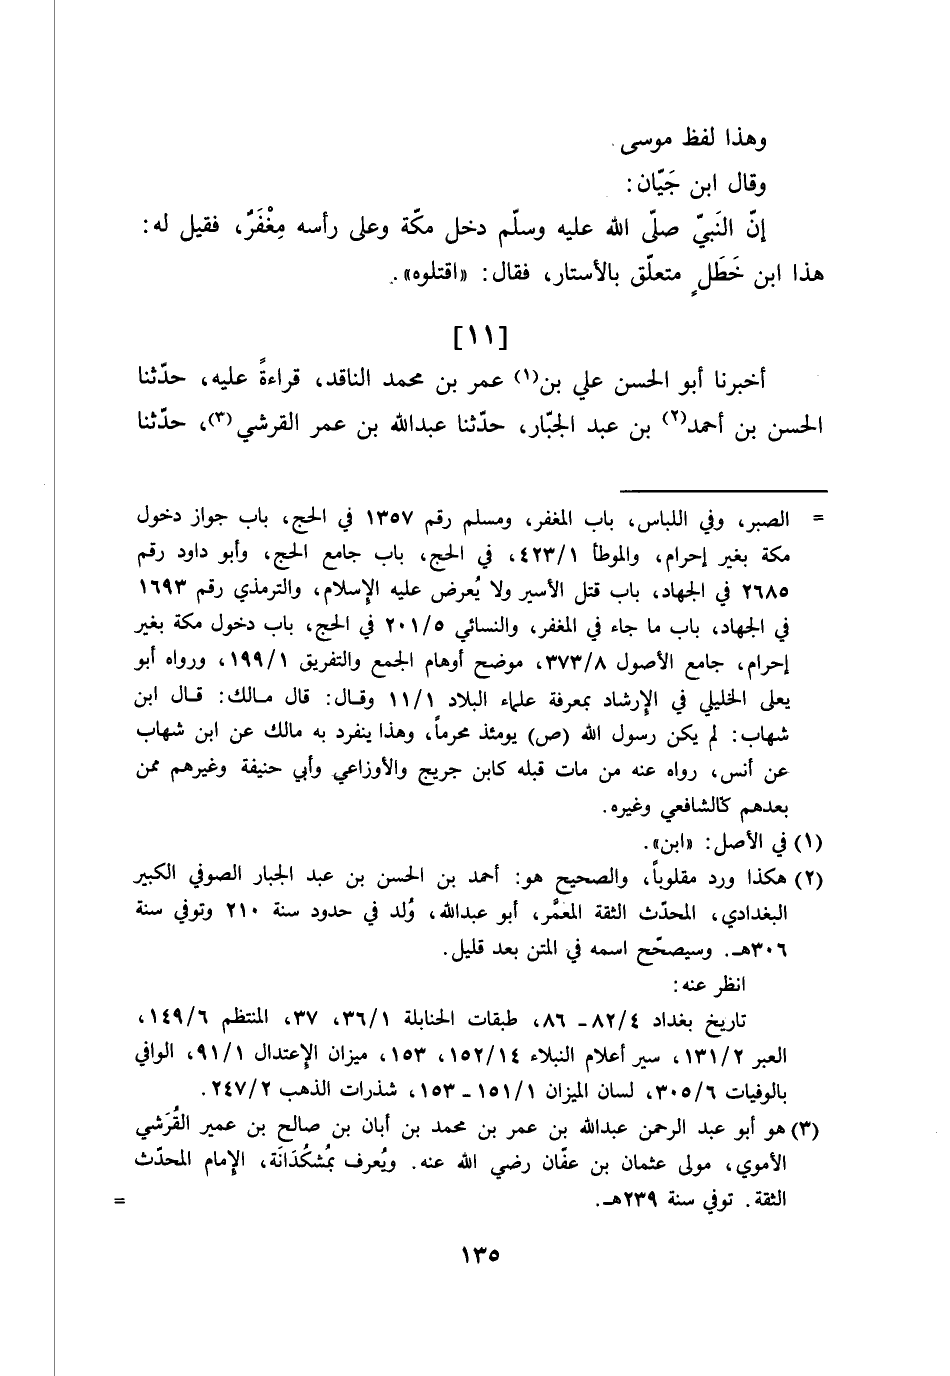 وهذا لفظ موسى.
وقال ابن جَيّان:
إنّ النَبيّ صلّى الله عليه وسلّم دخل مكّة وعلى رأسه مِغْفَرٌ، فقيل له:
هذا ابن خَطَلٍ متعلّق بالأستار، فقال: «اقتلوه».
[١١]
أخبرنا أبو الحسن علي بن(١) عمر بن محمد الناقد، قراءةً عليه، حدّثنا
الحسن بن أحمد(٢) بن عبد الجبّار، حدّثنا عبدالله بن عمر القرشي(٣)، حدّثنا
= الصبر، وفي اللباس، باب المغفر، ومسلم رقم ١٣٥٧ في الحج، باب جواز دخول
مكة بغير إحرام، والموطأ ٤٢٣/١، في الحج، باب جامع الحج، وأبو داود رقم
٢٦٨٥ في الجهاد، باب قتل الأسير ولا يُعرض عليه الإسلام، والترمذي رقم ١٦٩٣
في الجهاد، باب ما جاء في المغفر، والنسائي ٢٠١/٥ في الحج، باب دخول مكة بغير
إحرام، جامع الأصول ٣٧٣/٨، موضح أوهام الجمع والتفريق ١٩٩/١، ورواه أبو
يعلى الخليلي في الإرشاد بمعرفة علماء البلاد ١١/١ وقال: قال مالك: قال ابن
شهاب: لم يكن رسول الله (ص) يومئذ محرماً، وهذا ينفرد به مالك عن ابن شهاب
عن أنس، رواه عنه من مات قبله كابن جريج والأوزاعي وأبي حنيفة وغيرهم ممن
بعدهم كالشافعي وغيره.
(١) في الأصل: «ابن».
(٢) هكذا ورد مقلوباً، والصحيح هو: أحمد بن الحسن بن عبد الجبار الصوفي الكبير
البغدادي، المحدّث الثقة المعمَّر، أبو عبدالله، وُلد في حدود سنة ٢١٠ وتوفي سنة
٣٠٦هـ. وسيصحّح اسمه في المتن بعد قليل.
انظر عنه:
تاريخ بغداد ٨٢/٤ ـ ٨٦، طبقات الحنابلة ٣٦/١، ٣٧، المنتظم ١٤٩/٦،
العبر ١٣١/٢، سير أعلام النبلاء ١٥٢/١٤، ١٥٣، ميزان الإعتدال ٩١/١، الوافي
بالوفيات ٣٠٥/٦، لسان الميزان ١٥١/١ ـ ١٥٣، شذرات الذهب ٢٤٧/٢.
(٣) هو أبو عبد الرحمن عبدالله بن عمر بن محمد بن أبان بن صالح بن عمير القُرَشي
الأموي، مولى عثمان بن عفّان رضي الله عنه. ويُعرف بمُشكُدَانَة، الإمام المحدّث
الثقة. توفي سنة ٢٣٩هـ. =
١٣٥